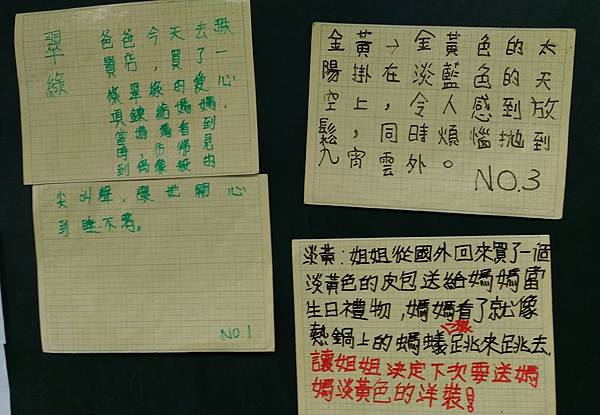 翠綠
爸爸今天去
買店,買了一
條翠綠的愛心,
項鍊給媽媽
當媽媽看到
時,彷彿見
到偶像般的
尖叫聲,讓她開心
到睡不著。
NO1
金黃→金黃色的太
陽掛在淡藍色的天
空上,令人感到放
鬆,同時煩惱拋到
九宵雲外。
NO.3
淡黃:姐姐從國外回來買了一個
淡黃色的皮包送給媽媽當
生日禮物,媽媽看了就像
熱鍋上的螞蟻一樣跳來跳去,
讓姐姐決定下次要送媽
媽淡黃色的洋裝!